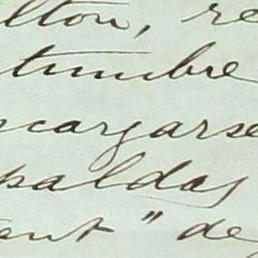 lton, re
tumbre
ncargarse
paldas
ent" de